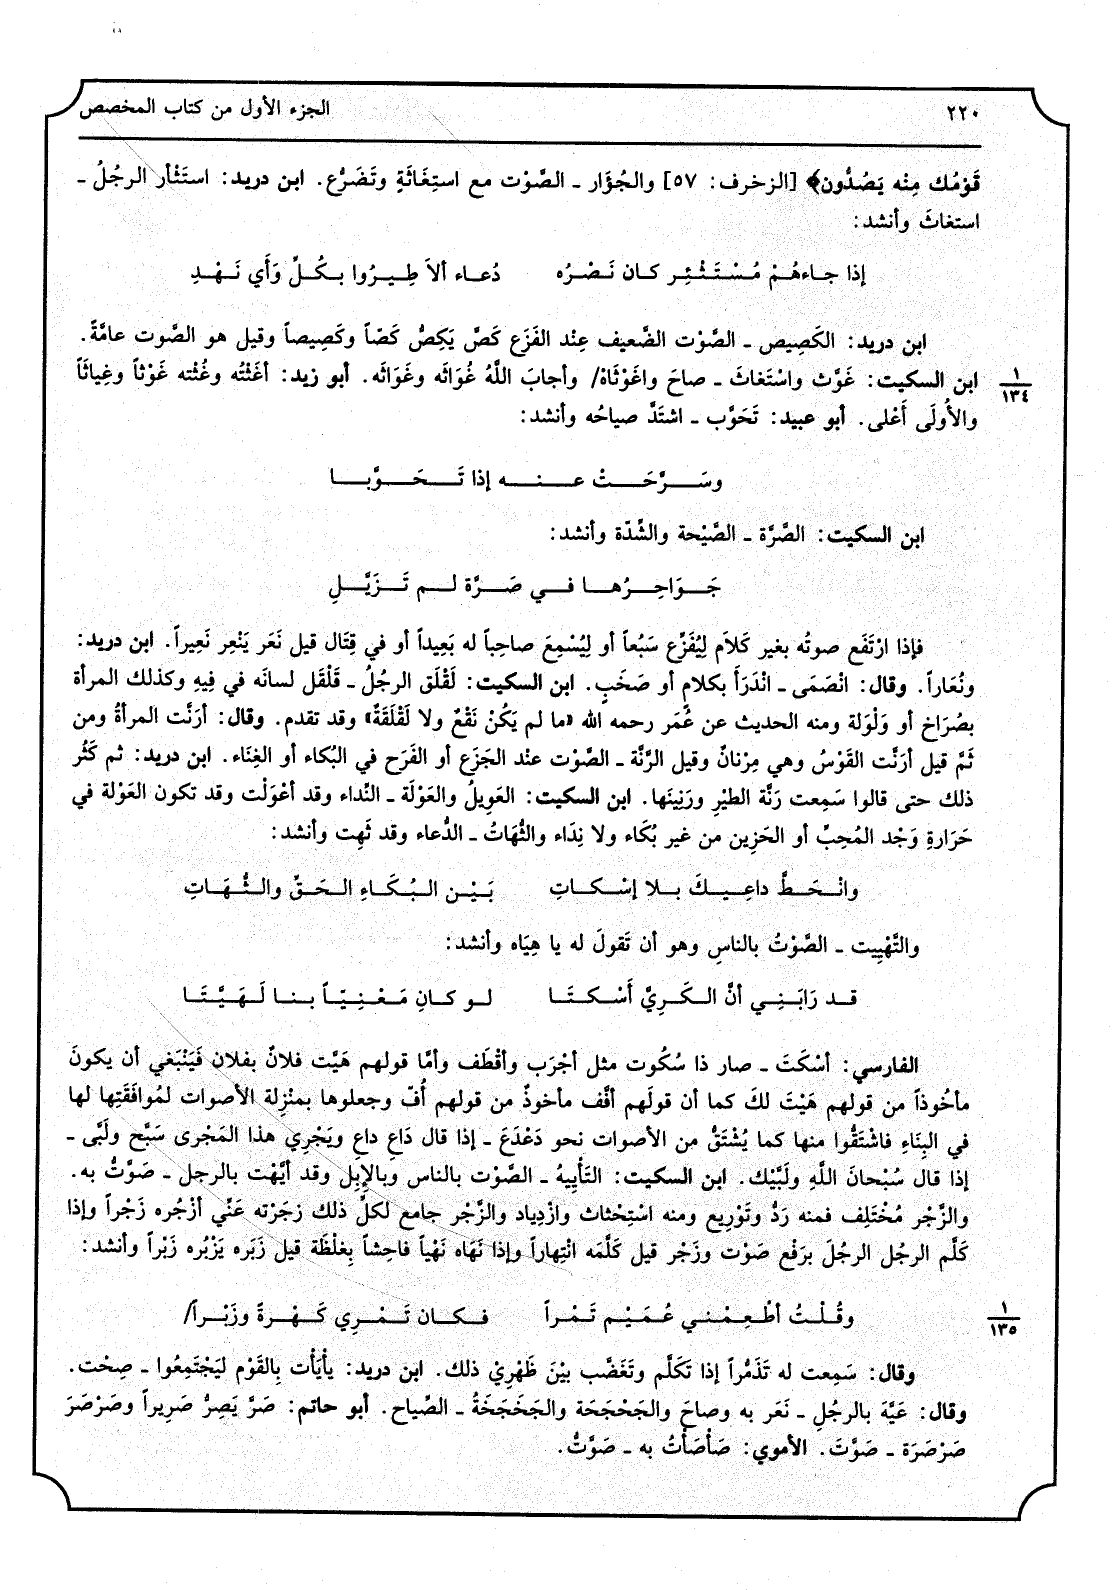 ٢٢٠ الجزء الأول من كتاب المخصص
قَوْمُك مِنْه يَصُدُّون﴾ [الزخرف: ٥٧] والجُؤَار ـ الصَّوْت مع استِغَاثَةٍ وتَضَرُّع. ابن دريد: استَثْأر الرجُلُ ـ
استغاثَ وأنشد:
إذا جـاءهُـمْ مُـسْـتَـثْـئِـر كـان نَـصْـرُه دُعـاء ألاَ طِـيـرُوا بـكُـلِّ وَأَي نَـهْـدِ
ابن دريد: الكَصِيص ـ الصَّوْت الضَّعيف عِنْد الفَزَع كَصَّ يَكِصُّ كَصّاً وكَصِيصاً وقيل هو الصَّوت عامَّةً.
ابن السكيت: غَوَّث واسْتَغاثَ ـ صاحَ واغَوْثَاهْ/ وأجابَ اللَّهُ غُوَاثَه وغَوَاثَه. أبو زيد: أغَثْتُه وغُثْته غَوْثاً وغِياثاً
١
١٣٤
والأُولَى أَعْلى. أبو عبيد: تَحَوَّب ـ اشتَدَّ صياحُه وأنشد:
وسَـــرَّحَـــتْ عـــنـــه إذا تَـــحَـــوَّبـــا
ابن السكيت: الصَّرَّة ـ الصَّيْحة والشِّدّة وأنشد:
جَـــوَاحِـــرُهـــا فـــي صَـــرَّة لـــم تَـــزَيَّـــلِ
فإذا ارْتَفَع صوتُه بغير كَلاَم لِيُفَزِّع سَبُعاً أو لِيُسْمِعَ صاحِباً له بَعِيداً أو في قِتَال قيل نَعَر يَنْعِر نَعِيراً. ابن دريد:
ونُعَاراً. وقال: انْصَمَى ـ انْدَرَأ بكلامٍ أو صَخَبٍ. ابن السكيت: لَقْلَق الرجُلُ ـ قَلْقَل لسانَه في فِيهِ وكذلك المرأة
بصُرَاخ أو وَلْوَلة ومنه الحديث عن عُمَر رحمه الله «ما لم يَكُنْ نَقْعٌ ولا لَقْلَقَةٌ» وقد تقدم. وقال: أرَنَّت المرأةُ ومن
ثَمَّ قيل أرَنَّت القَوْسُ وهي مِرْنانٌ وقيل الرَّنَّة ـ الصَّوْت عنْد الجَزَع أو الفَرَح في البُكاء أو الغِنَاء. ابن دريد: ثم كَثُر
ذلك حتى قالوا سَمِعت رَنَّة الطيْرِ ورَنِينَها. ابن السكيت: العَوِيلُ والعَوْلَة ـ النِّداء وقد أعْوَلَت وقد تكون العَوْلة في
حَرَارةِ وَجْد المُحِبِّ أو الحَزِين من غير بُكَاء ولا نِدَاء والثُّهَاتُ ـ الدُّعاء وقد ثَهِت وأنشد:
وانْـحَـطَّ داعـيـكَ بـلا إسْـكـاتِ بَـيْـن الـبُـكَـاءِ الـحَـقِّ والـثُّـهَـاتِ
والتَّهْيِيت ـ الصَّوْتُ بالناسِ وهو أن تَقولَ له يا هِيَاه وأنشد:
قـد رَابَـنِـي أنَّ الـكَـرِيَّ أَسْـكـتَـا لـو كـانِ مَـعْـنِـيّـاً بـنـا لَـهَـيَّـتَـا
الفارسي: أسْكَتَ ـ صار ذا سُكُوت مثل أجْرَب وأقْطَف وأمَّا قولهم هَيَّت فلانٌ بفلان فَيَنْبَغي أن يكونَ
مأخُوذاً من قولهم هَيْتَ لكَ كما أن قولَهم أفَّف مأخوذٌ من قولهم أُفّ وجعلوها بمنْزِلة الأصوات لمُوافَقَتِها لها
في البِنَاءِ فاشتَقُّوا منها كما يُشْتَقُّ من الأصوات نحو دَعْدَعَ ـ إذا قال دَاعِ داعِ ويَجْرِي هذا المَجْرى سَبَّح ولَبَّى ـ
إذا قال سُبْحانَ اللَّهِ ولَبَّيْك. ابن السكيت: التَأْيِيهُ ـ الصَّوْت بالناس وبالإِبِل وقد أيَّهْت بالرجل ـ صَوَّتُّ به.
والزَّجْر مُخْتَلِف فمنه رَدٌّ وتَوْرِيع ومنه اسْتِحْثاث وازْدِياد والزَّجْر جامع لكلِّ ذلك زجَرْته عَنِّي أزْجُره زَجْراً وإذا
كَلَّم الرجُل الرجُلَ برَفْع صَوْت وزَجْر قيل كَلَّمَه انْتِهاراً وإذا نَهَاه نَهْياً فاحِشاً بِغِلْظَة قيل زَبَره يَزْبُره زَبْراً وأنشد:
وقُـلْـتُ أطْـعِـمْـنـي عُـمَـيْـم تَـمْـرا فـكـان تَـمْـرِي كَـهْـرةً وزَبْـراً/
١
١٣٥
وقال: سَمِعت له تَذَمُّراً إذا تَكَلَّم وتَغَضَّب بيْنَ ظَهْرِيْ ذلك. ابن دريد: يأْيَأْت بِالقَوْم لِيَجْتَمِعُوا ـ صِحْت.
وقال: عَيَّهَ بالرجُلِ ـ نَعَر به وصاحَ والجَحْجَحَة والجَخْجَخَةُ ـ الصِّياح. أبو حاتم: صَرَّ يَصِرُّ صَرِيراً وصَرْصَرَ
صَرْصَرَة ـ صَوَّتَ. الأموي: صَأْصَأْتُ به ـ صَوَّتُّ.